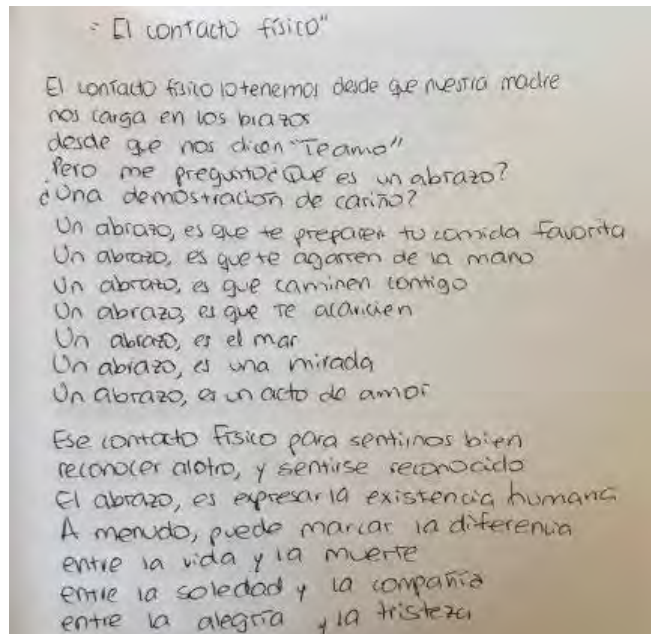 "El contacto físico"
El contacto físico lo tenemos desde que nuestra madre
nos carga en los brazos
desde que nos dicen "Te amo"
Pero me pregunto ¿Qué es un abrazo?
¿Una demostración de cariño?
Un abrazo, es que te preparen tu comida favorita
Un abrazo, es que te agarren de la mano
Un abrazo, es que caminen contigo
Un abrazo, es que te acaricien
Un abrazo, es el mar
Un abrazo, es una mirada
Un abrazo, es un acto de amor
Ese contacto físico para sentirnos bien
reconocer al otro, y sentirse reconocido
El abrazo, es expresar la existencia humana
A menudo, puede marcar la diferencia
entre la vida y la muerte
entre la soledad y la compañía
entre la alegría y la tristeza